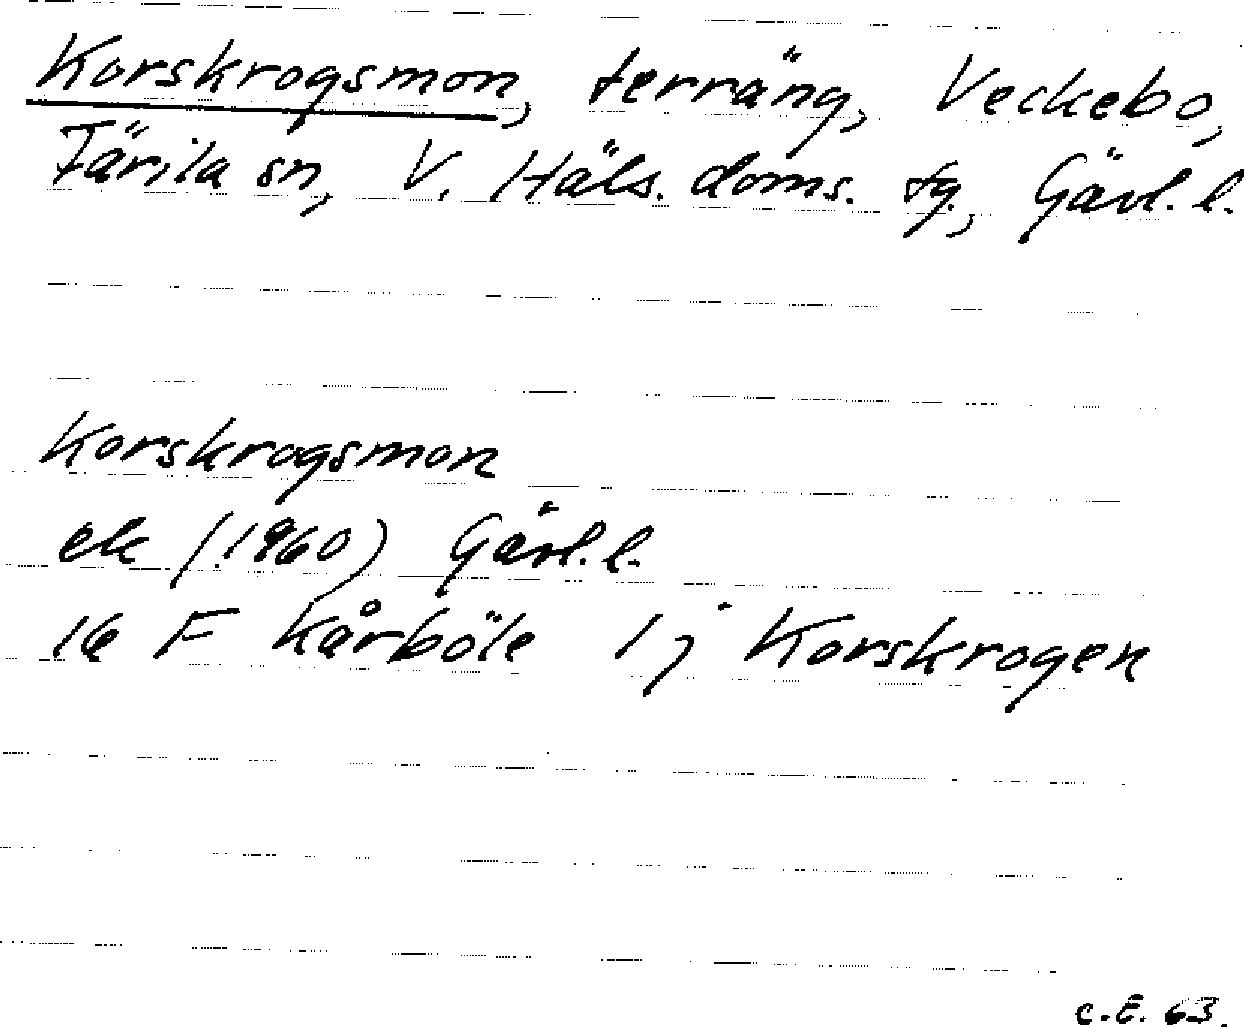 Korskrogsmon, terräng, Veckebo,
Färila sn, V. Häls. doms. tg., Gävl. l.
Korskrogsmon
ek (1960) Gävl. l.
16 F Kårböle 1 j Korskrogen
C.E. 63.